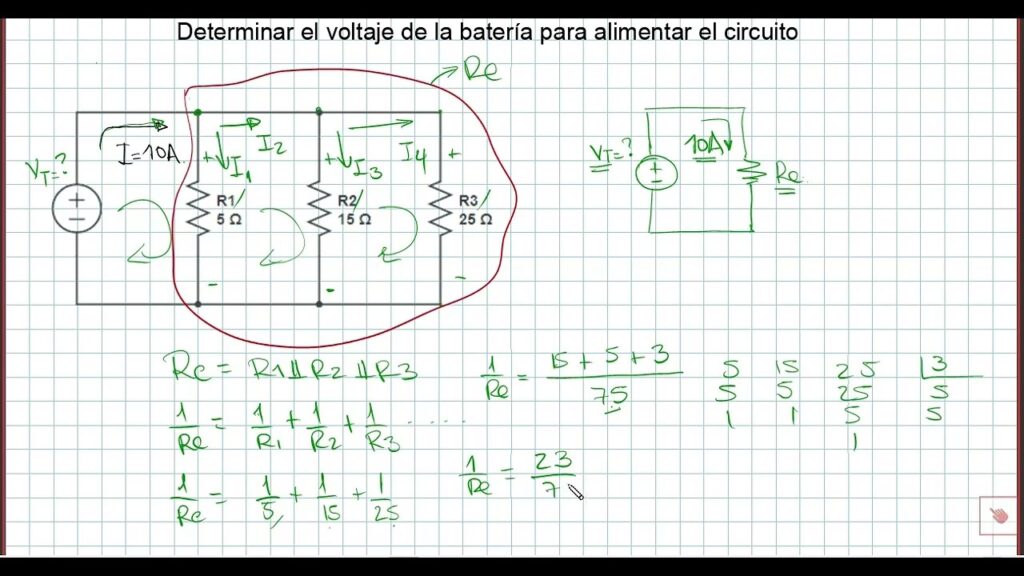 Determinar el voltaje de la batería para alimentar el circuito
Re
I=10A
I₂
I₁
I₃
I₄
V_T=?
R1
5 Ω
R2
15 Ω
R3
25 Ω
V_T=?
10A
Re
Re = R1 || R2 || R3
1/Re = 1/R₁ + 1/R₂ + 1/R₃ .....
1/Re = 1/5 + 1/15 + 1/25
1/Re = 15 + 5 + 3 / 75
1/Re = 23/7
5 15 25 | 3
5 5 25 5
1 1 5 5
1